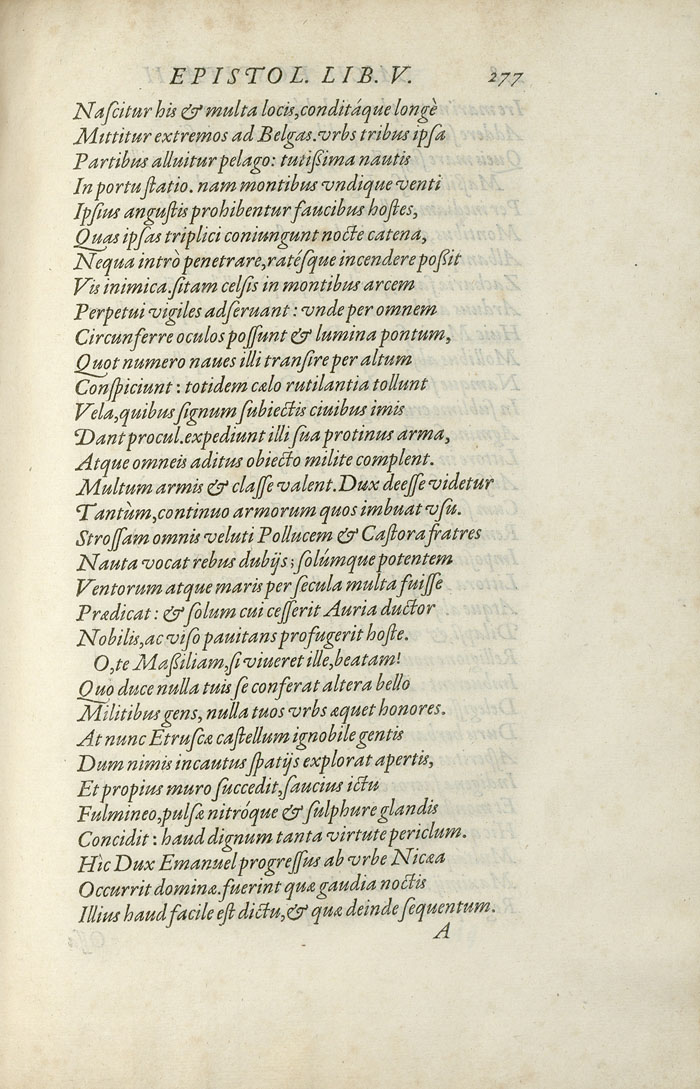 EPISTOL. LIB. V. 277
Naſcitur his & multa locis,conditáque longè
Mittitur extremos ad Belgas.vrbs tribus ipſa
Partibus alluitur pelago: tutißima nautis
In portu ſtatio. nam montibus vndique venti
Ipſius anguſtis prohibentur faucibus hoſtes,
Quas ipſas triplici coniungunt nocte catena,
Nequa intrò penetrare,ratéſque incendere poßit
Vis inimica.ſitam celſis in montibus arcem
Perpetui vigiles adſeruant: vnde per omnem
Circunferre oculos poſſunt & lumina pontum,
Quot numero naues illi tranſire per altum
Conſpiciunt: totidem cælo rutilantia tollunt
Vela,quibus ſignum ſubiectis ciuibus imis
Dant procul.expediunt illi ſua protinus arma,
Atque omneis aditus obiecto milite complent.
Multum armis & claſſe valent.Dux deeſſe videtur
Tantùm,continuo armorum quos imbuat vſu.
Stroſſam omnis veluti Pollucem & Caſtora fratres
Nauta vocat rebus dubijs; ſolúmque potentem
Ventorum atque maris per ſecula multa fuiſſe
Prædicat: & ſolum cui ceſſerit Auria ductor
Nobilis,ac viſo pauitans profugerit hoſte.
O,te Maßiliam,ſi viueret ille,beatam!
Quo duce nulla tuis ſe conferat altera bello
Militibus gens, nulla tuos vrbs æquet honores.
At nunc Etruſcæ caſtellum ignobile gentis
Dum nimis incautus ſpatijs explorat apertis,
Et propius muro ſuccedit,ſaucius ictu
Fulmineo,pulſæ nitróque & ſulphure glandis
Concidit: haud dignum tanta virtute periclum.
Hìc Dux Emanuel progreſſus ab vrbe Nicæa
Occurrit dominæ.fuerint quæ gaudia noctis
Illius haud facile eſt dictu,& quæ deinde ſequentum.
A